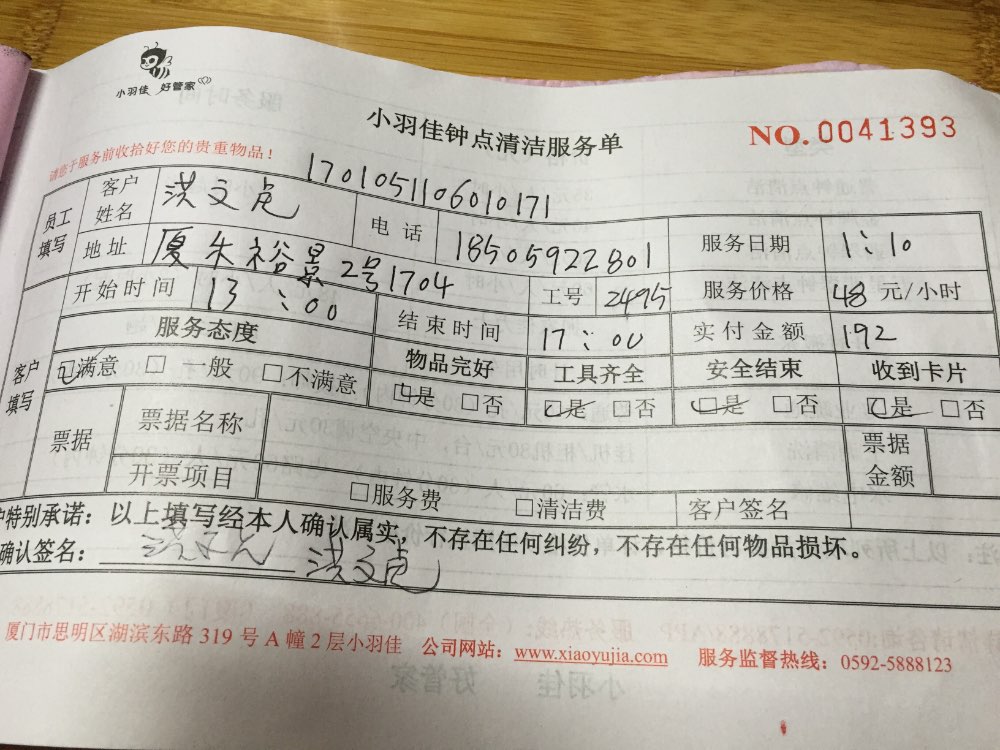 小羽佳 好管家
小羽佳钟点清洁服务单
NO.0041393
请您于服务前收拾好您的贵重物品！
1701051106010171
员工填写 客户姓名 洪文 电话 18505922801 服务日期 1:10
地址 厦 裕景2号1704 工号 2495 服务价格 48 元/小时
开始时间 13:00 结束时间 17:00 实付金额 192
客户填写 服务态度 物品完好 工具齐全 安全结束 收到卡片
☑满意 □一般 □不满意 ☑是 □否 ☑是 □否 ☑是 □否 ☑是 □否
票据 票据名称 票据金额
开票项目 □服务费 □清洁费 客户签名
户特别承诺：以上填写经本人确认属实，不存在任何纠纷，不存在任何物品损坏。
确认签名： 洪文 洪文
厦门市思明区湖滨东路 319 号 A 幢 2 层小羽佳 公司网站：www.xiaoyujia.com 服务监督热线：0592-5888123